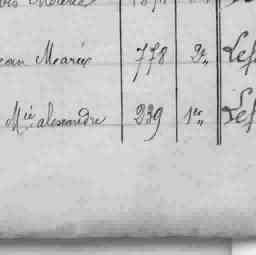 ean Marie 778 2e,, Lef
Mie alexandre 239 1er,, Lef